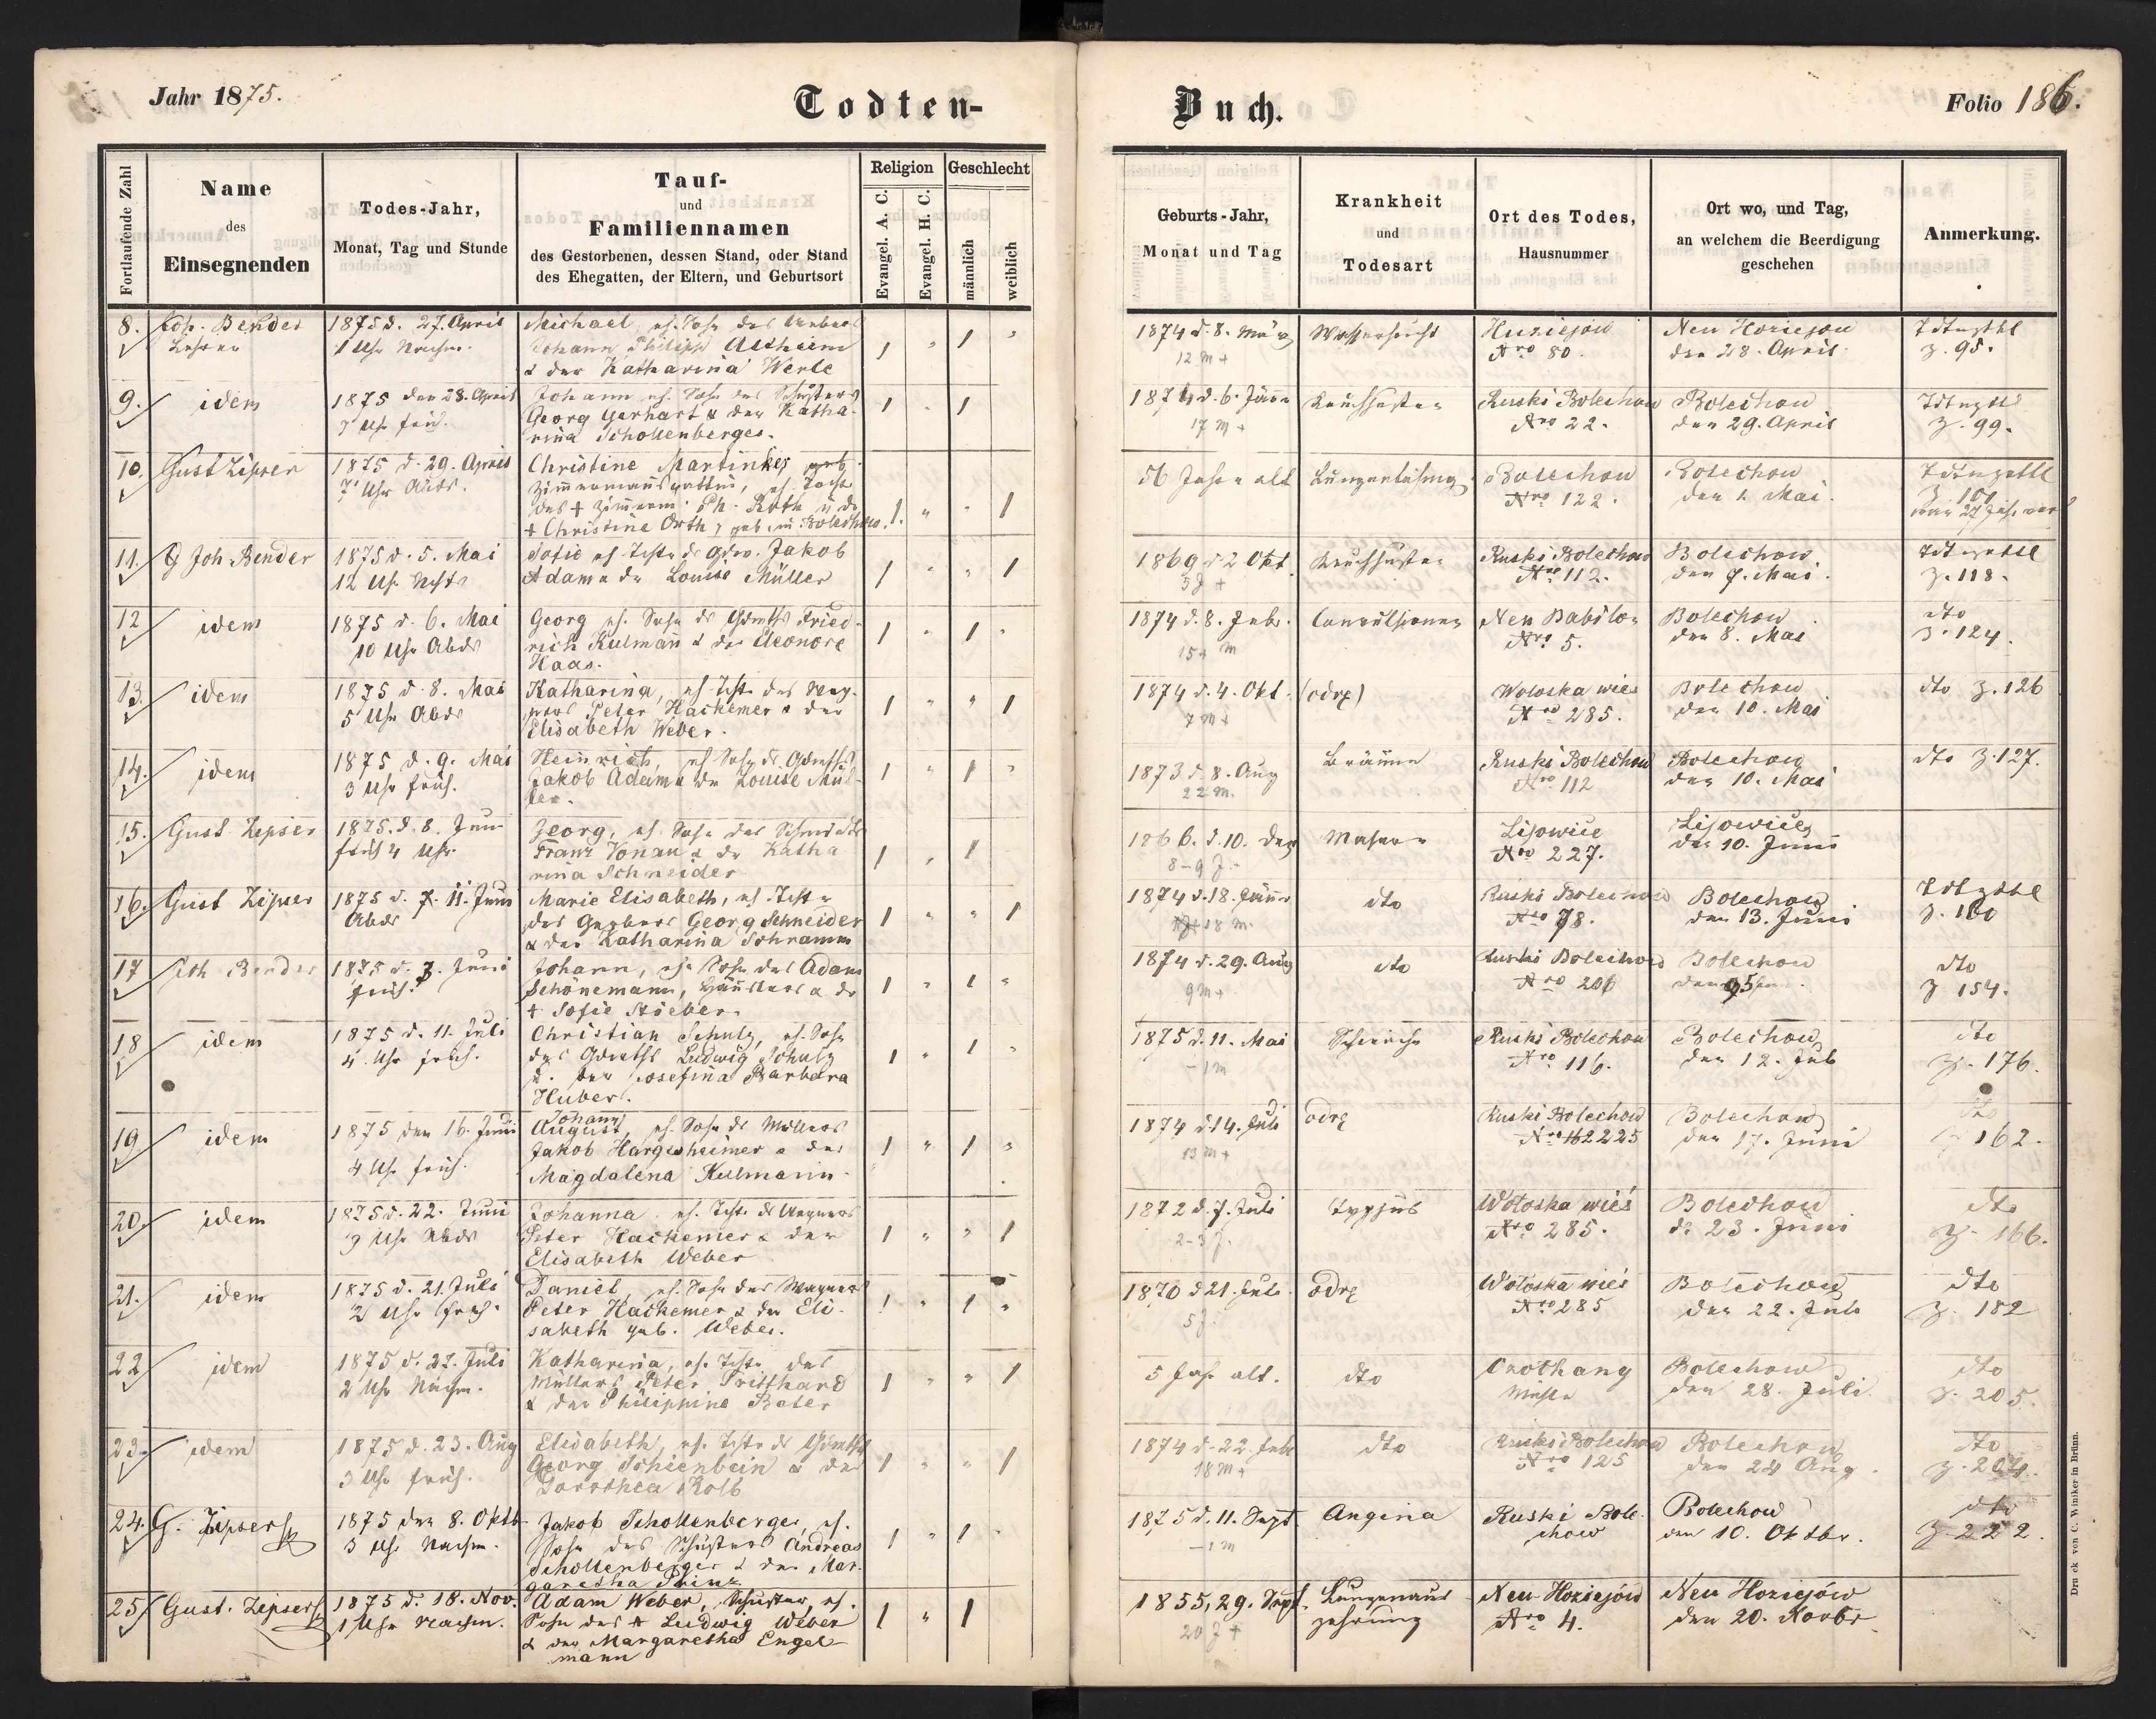 Jahr 1875.
Todten-
Buch.
Folio 186.
Fortlaufende Zahl
Name
des
Einsegnenden
Todes-Jahr,
Monat, Tag und Stunde
Tauf-
und
Familiennamen
des Gestorbenen, dessen Stand, oder Stand
des Ehegatten, der Eltern, und Geburtsort
Religion
Evangel. A. C.
Evangel. H. C.
Geschlecht
männlich
weiblich
Geburts-Jahr,
Monat und Tag
Krankheit
und
Todesart
Ort des Todes,
Hausnummer
Ort wo, und Tag,
an welchem die Beerdigung
geschehen
Anmerkung.
8. Joh. Bender
Lehrer
1875 d. 27. April
1 Uhr Nachm.
Michael, eh. Sohn des
Johann Philipp Altheim
& der Katharina Werle
1874 d. 8. März
12 M +
Wassersucht
Hoziejow
Nro 80.
Neu Hoziejow
den 28. April
Z. 95.
9. idem
1875 den 28. April
Uhr früh.
Johann eh. Sohn des Schusters
Georg Gerhart & der Katha-
rina Schollenberger.
1874 d. 6. Jänn
17 M +
Keuchhusten
Ruski Bolechow
Nro 22.
Bolechow
den 29. April
Z. 99.
10. Gust Zipser
1875 d. 29. April
7 Uhr Abds.
Christine Martinkey
Zimmermannsgattin, eh. Tocht
des + Zimmerm. Ph. Roth u. der
+ Christine Orth, geb. in Bolechow.
56 Jahre alt
Lungenlähmung
Bolechow
Nro 122.
Bolechow
den 1. Mai.
11. Joh. Bender
1875 d. 5. Mai
12 Uhr Nchts
Sofie eh. Tocht. ds Jakob
Adam & der Louise Müller
1869 d. 2 Okt.
5 J +
Keuchhusten
Ruski Bolechow
Nro 112.
Bolechow
den 7. Mai.
Z. 118.
12 idem
1875 d. 6. Mai
10 Uhr Abds
Georg eh. Sohn ds Fried-
rich Kulmann & der Eleonore
Haas.
1874 d. 8. Febr.
15 + M
Convulsionen
Neu Babilon
Nro 5.
Bolechow
den 8. Mai
dto
Z. 124.
13. idem
1875 d. 8. Mai
5 Uhr Abds
Katharina, eh. Tcht. des Wag-
ners Peter Hachemer & der
Elisabeth Weber.
1874 d. 4. Okt.
7 M +
(odrę)
Woloska wies
Nro 285.
Bolechow
den 10. Mai
dto Z. 126
14. idem
1875 d. 9. Mai
3 Uhr früh.
Heinrich, eh. Sohn ds
Jakob Adam & der Louise Mül-
ler.
1873 d. 8. Aug
22 M.
Bräune
Ruski Bolechow
Nro 112
Bolechow
den 10. Mai
dto Z. 127.
15. Gust. Zipser
1875. d. 8. Juni
früh 4 Uhr
Georg, eh. Sohn des Schmieds
Franz Vonau & der Katha
rina Schneider
1866. d. 10. Dez
8-9 J.
Masern
Lisowice
Nro 227.
Lisowice
den 10. Juni
16. Gust Zipser
1875 d. 11. Juni
Abds
Marie Elisabeth, eh. Tocht.
des Gerbers Georg Schneider
& der Katharina Schramm
1874 d. 18. Jänn
18 M.
dto
Ruski Bolechow
Nro 78.
Bolechow
den 13. Juni
17 Joh Bender
1875 d. 3. Juni
früh.
Johann, eh. Sohn des Adam
Schönemann, & der
+ Sofie Stöeber.
1874 d. 29. Aug
9 M +
dto
Ruski Bolechow
Nro 206
Bolechow
dto
Z 154.
18 idem
1875 d. 11. Juli
4. Uhr früh.
Christian Schulz, eh. Sohn
des Ludwig Schulz
u. der Josefina Barbara
Huber.
1875 d. 11. Mai
- 1 M
Ruski Bolechow
Nro 116.
Bolechow
den 12. Juli
dto
Z. 176.
19 idem
1875 den 16. Juni
4 Uhr früh.
Johann
August, eh. Sohn ds Müllers
Jakob Hargesheimer & der
Magdalena Kulmann.
1874 d. 14. Juli
13 M +
odrę
Ruski Bolechow
Nro 162 225
Bolechow
den 17. Juni
dto
Z 162.
20. idem
1875 d. 22. Juni
9 Uhr Abds
Johanna eh. Tcht. ds Wagners
Peter Hachemer & der
Elisabeth Weber
1872 d. 7. Juli
2-3 J.
Typhus
Woloska wieś
Nro 285.
Bolechow
d. 23. Juni
dto
Z. 166.
21. idem
1875 d. 21. Juli
2 Uhr früh.
Daniel, eh. Sohn des Wagners
Peter Hachemer & der Eli-
sabeth geb. Weber.
1870 d 21. Juli
5 J.
odrę
Woloska wieś
Nro 285
Bolechow
den 22. Juli
dto
Z. 182
22 idem
1875 d. 27. Juli
2 Uhr Nachm.
Katharina, eh. Tcht. des
Müllers Peter Tritthard
& der Philippine Bater
5 Jahr alt.
dto
Bolechow
den 28. Juli.
dto
Z. 205.
23. idem
1875 d. 23. Aug
3 Uhr früh.
Elisabeth, eh. Tcht. ds
Georg Schienbein & der
Dorothea Kolb
1874 d. 22. Febr
18 M +
dto
Ruski Bolechow
Nro 125
Bolechow
den 24 Aug.
dto
24. G. Zipser
1875 den 8. Oktb
3 Uhr Nachm.
Jakob Schollenberger, eh.
Sohn des Schusters Andreas
Schollenberger & der Mar-
garetha Prinz
1875 d. 11. Sept.
- 1 M
Angina
Ruski Bole-
chow
Bolechow
den 10. Oktbr.
dto
Z. 222.
25 Gust. Zipser
1875 d. 18. Nov.
1 Uhr Nachm.
Adam Weber, Schuster, eh.
Sohn des + Ludwig Weber
& der Margaretha Engel-
mann
1855, 29. Sept.
20 J +
Lungenaus
zehrung
Neu Hoziejów
Nro 4.
Neu Hoziejów
den 20. Novbr
Druck von C. Winiker in Brünn.